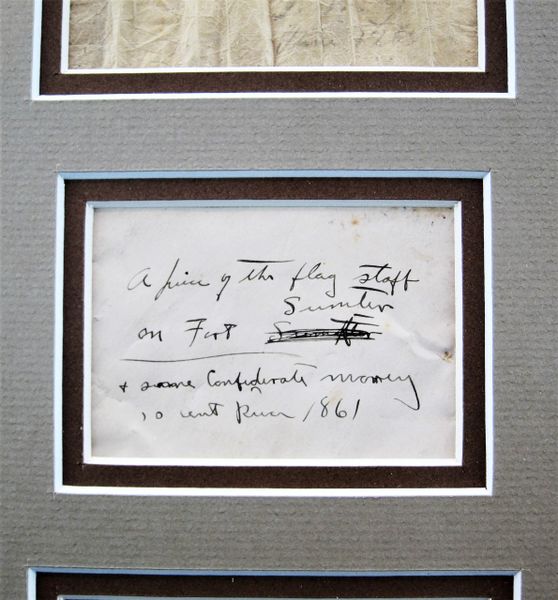 A piece of the flag staff
Sumter
on Fort
& some Confederate money
10 cent 1861